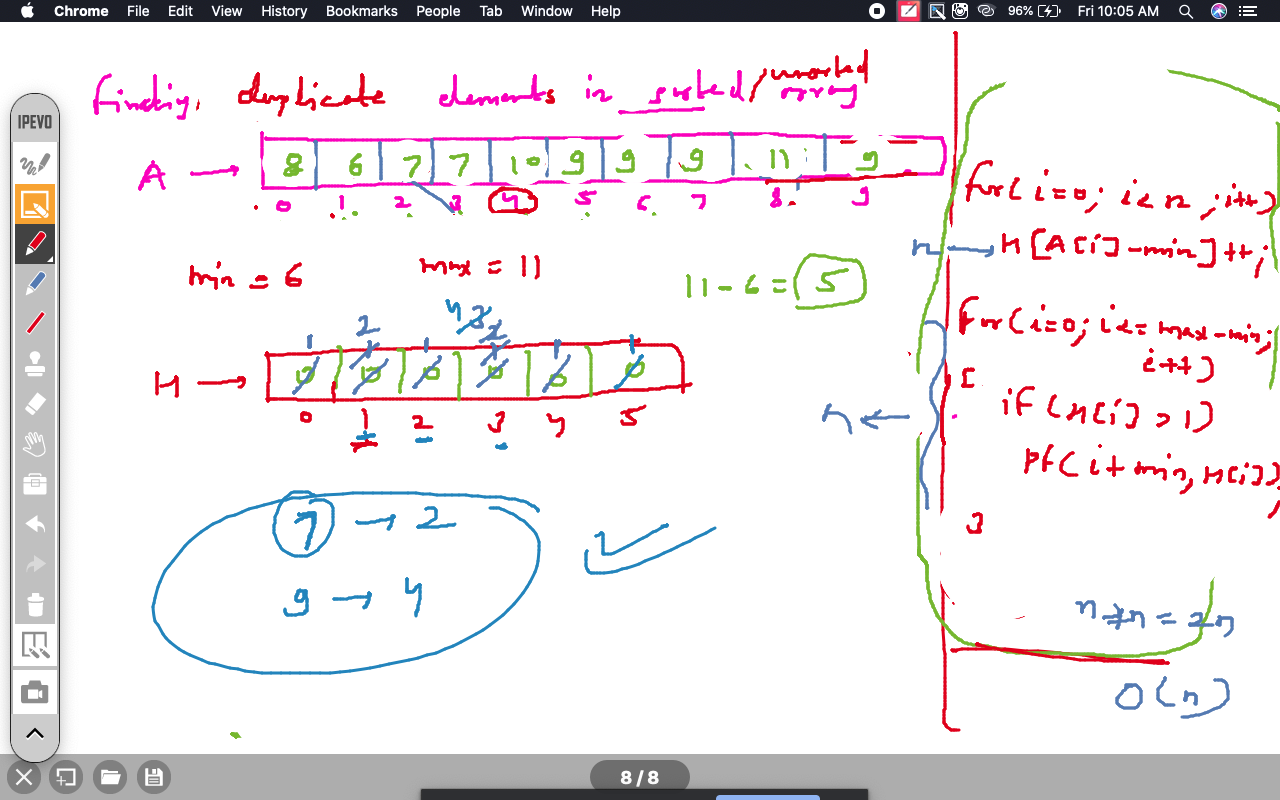 Chrome File Edit View History Bookmarks People Tab Window Help 96% Fri 10:05 AM
IPEVO
Finding duplicate elements in sorted/unsorted array
A → 8 6 7 7 10 9 9 9 11 9
0 1 2 3 4 5 6 7 8 9
min = 6 max = 11 11 - 6 = 5
2 4 3 2
1 1 1 1 1 1
H → 0 0 0 0 0 0
0 1 2 3 4 5
7 → 2
9 → 4
for( i=0; i<n ; i++)
n → H[A[i]-min]++;
for(i=0; i<=max-min;
i++)
{
n ← if (H[i] > 1)
Pf( i+min, H[i]);
}
n+n = 2n
O(n)
8 / 8